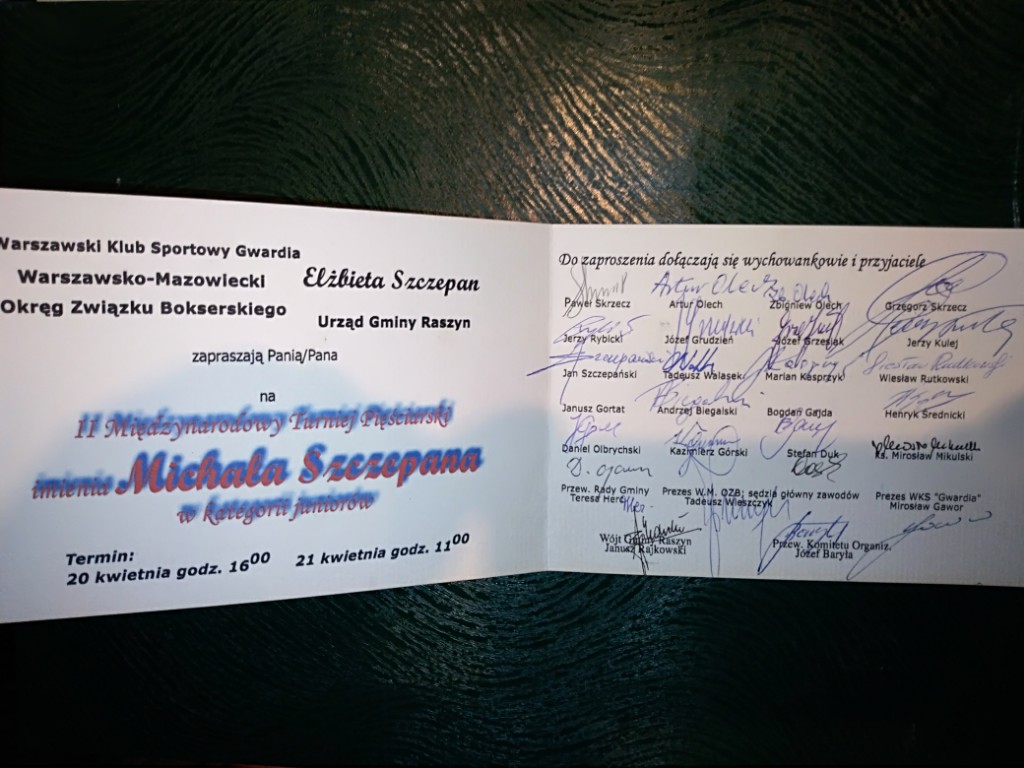 Warszawski Klub Sportowy Gwardia
Warszawsko-Mazowiecki
Okręg Związku Bokserskiego
Elżbieta Szczepan
Urząd Gminy Raszyn
zapraszają Panią/Pana
na
II Międzynarodowy Turniej Pięściarski
imienia Michała Szczepana
w kategorii juniorów
Termin:
20 kwietnia godz. 16⁰⁰ 21 kwietnia godz. 11⁰⁰
Do zaproszenia dołączają się wychowankowie i przyjaciele
Artur Olech
Paweł Skrzecz Artur Olech Zbigniew Olech Grzegorz Skrzecz
Jerzy Rybicki Józef Grudzień Józef Grzesiak Jerzy Kulej
Szczepański
Jan Szczepański Tadeusz Walasek Marian Kasprzyk Wiesław Rutkowski
Janusz Gortat Andrzej Biegalski Bogdan Gajda Henryk Średnicki
Daniel Olbrychski Kazimierz Górski Stefan Duk ks. Mirosław Mikulski
Przew. Rady Gminy
Teresa Herc
Prezes W.M. OZB; sędzia główny zawodów
Tadeusz Wieszczyk
Prezes WKS "Gwardia"
Mirosław Gawor
Wójt Gminy Raszyn
Janusz Rajkowski
Przew. Komitetu Organiz.
Józef Baryła